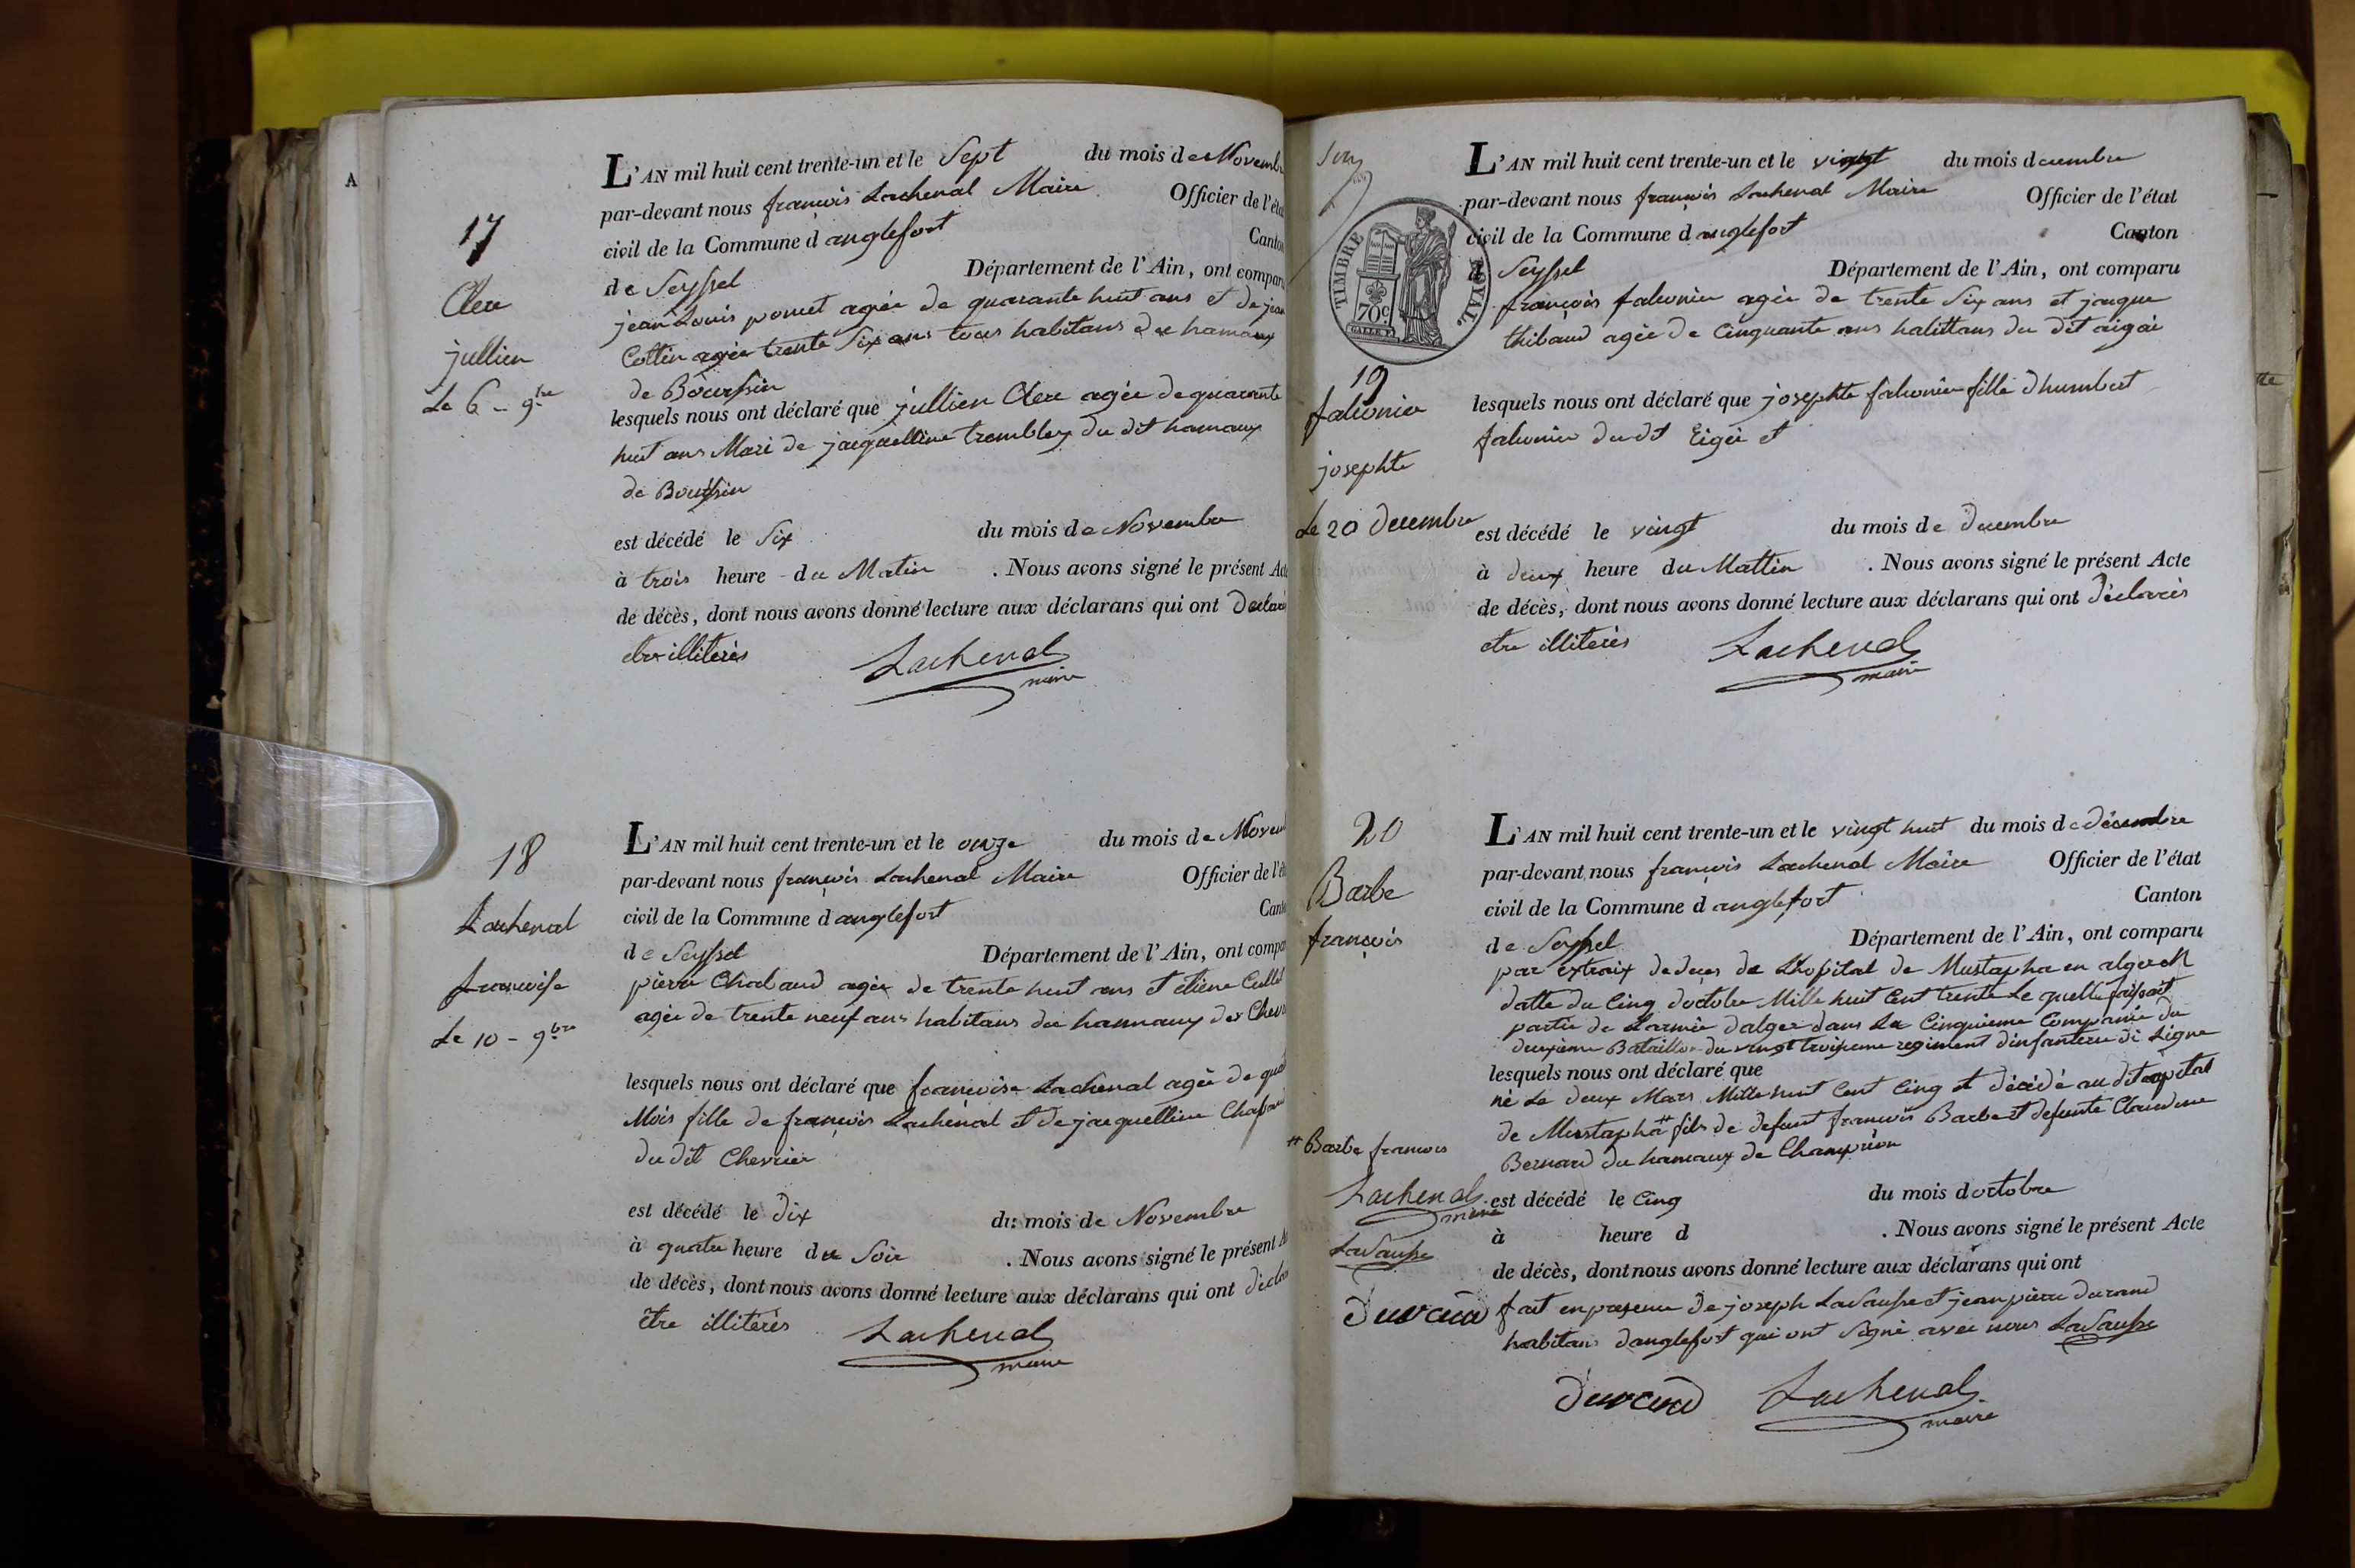 A
17
Clerc
jullien
Le 6 - 9.bre
L'AN mil huit cent trente-un et le Sept du mois de Novemb
par-devant nous françois Lachenal Maire Officier de l'éta
civil de la Commune d anglefort Canton
de Seyssel Département de l'Ain, ont compar
jean Louis poncet agée de quarante huit ans et de jean
Cottin agée trente Six ans tous habitans de hamaux
de Bourssin
lesquels nous ont déclaré que jullien Clerc agée de quarante
huit ans Mari de jacquelline trembley du dit hamaux
de Bourssin
est décédé le Six du mois de Novembre
à trois heure du Matin . Nous avons signé le présent Acte
de décès, dont nous avons donné lecture aux déclarans qui ont Declarés
etre illiterés
Lachenal
maire
18
Lachenal
francoise
Le 10 - 9.bre
L'AN mil huit cent trente-un et le onze du mois de Novem
par-devant nous françois Lachenal Maire Officier de l'ét
civil de la Commune d anglefort Cant
de Seyssel Département de l'Ain, ont compa
pierre Chabaud agée de trente huit ans et étiene Cullet
agée de trente neuf ans habitans du hammaux des Chevr
lesquels nous ont déclaré que françoise Lachenal agée de quat
Mois fille de françois Lachenal et de jacquelline
du dit Chevrier
est décédé le dix du mois de Novembre
à quatre heure du Soir . Nous avons signé le présent A
de décès, dont nous avons donné lecture aux déclarans qui ont declar
être illitérés
Lachenal
maire
TIMBRE ROYAL.
70c
19
falconier
josephte
Le 20 decembre
L'AN mil huit cent trente-un et le vingt du mois decembre
par-devant nous françois Lachenal Maire Officier de l'état
civil de la Commune d anglefort Canton
d Seyssel Département de l'Ain, ont comparu
françois falconier agée de trente Six ans et jacque
thibaud agée de Cinquante ans habittans du dit
lesquels nous ont déclaré que josephte falconier fille dhumbert
falconier du dit et
est décédé le vingt du mois de decembre
à deux heure du Mattin . Nous avons signé le présent Acte
de décès, dont nous avons donné lecture aux déclarans qui ont déclarés
etre illiterés
Lachenal
maire
20
Barbe
françois
L'AN mil huit cent trente-un et le vingt huit du mois de décembre
par-devant nous françois Lachenal Maire Officier de l'état
civil de la Commune d anglefort Canton
de Seyssel Département de l'Ain, ont comparu
par extraix de deces de Lhopital de Mustapha en alger en
datte du Cinq doctobre Mille huit Cent trente Le quelle faissoit
partie de Larmée dalger dans La Cinquieme Compagnie du
deuxieme Bataillon du vingt troisieme regiment dinfanterie de Ligne
lesquels nous ont déclaré que
né Le deux Mars Mille huit Cent Cinq et décédé au dit opital
de Mustapha # fils de defunt francois Barbe et defunte Claudine
Bernard du hamaux de Champrion
# Barbe francois
Lachenal
maire
Lavausse
Durand
est décédé le Cinq du mois doctobre
à heure d . Nous avons signé le présent Acte
de décès, dont nous avons donné lecture aux déclarans qui ont
fait en presence de joseph Lavausse et jean pierre durand
habitans danglefort qui ont Signé avec nous Lavausse
Durand Lachenal
maire